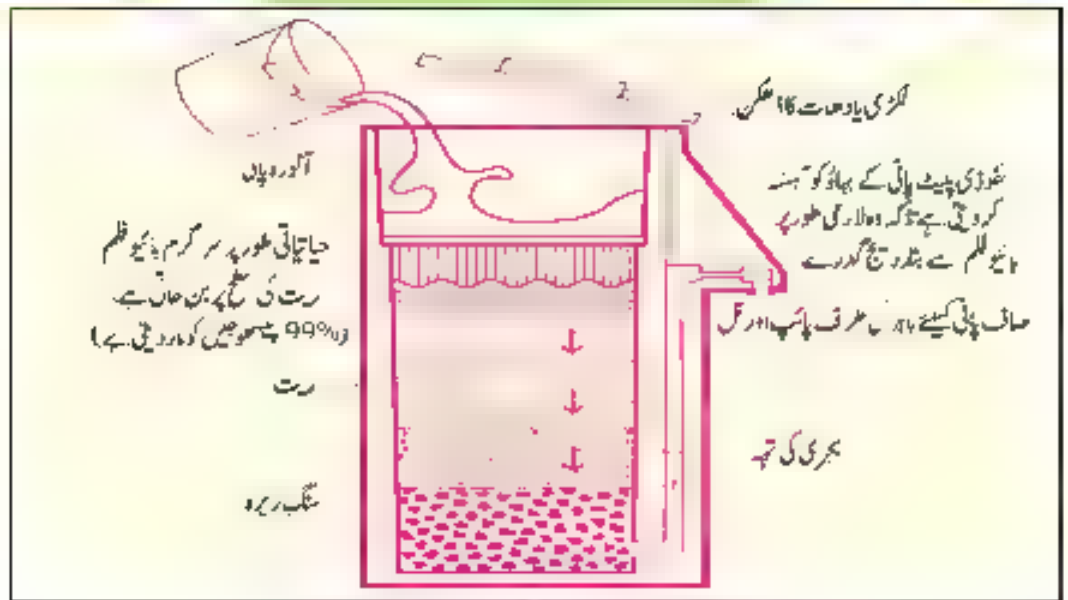 لکڑی یا دھات کا ڈھکن
آلودہ پانی
پلیٹ پانی کے بہاؤ کو آہستہ
کر دیتی ہے تاکہ وہ لازمی طور پر
بائیو فلم سے بتدریج گزرے
حیاتیاتی طور پر سرگرم بائیو فلم
ریت کی سطح پر بن جاتی ہے
(99%
صاف پانی کیلئے طرف پائپ اور نل
ریت
بجری کی تہہ
سنگ ریزہ